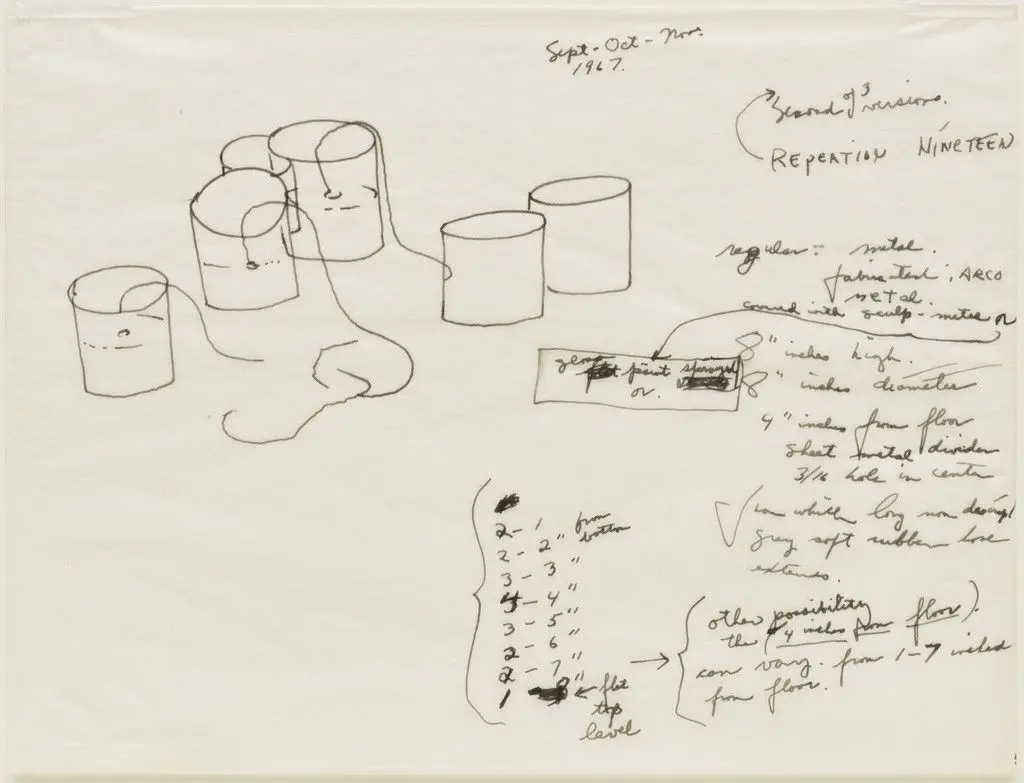 Sept - Oct - Nov.
1967.
Second of 3 versions.
REPEATION NINETEEN
regular: metal.
fabricated, ARCO
METAL.
covered with sculp-metal or
paint sprayed
or.
8" inches high.
8" inches diameter
4" inches from floor
sheet metal divider
3/16 hole in center
from which long non descript
grey soft rubber hose
extends.
2 - 1 " from bottom
2 - 2 "
3 - 3 "
4 - 4 "
3 - 5 "
2 - 6 "
2 - 7 "
1 8 " ← flat
top
level
other possibility
the (4 inches from floor).
can vary. from 1-7 inches
from floor.